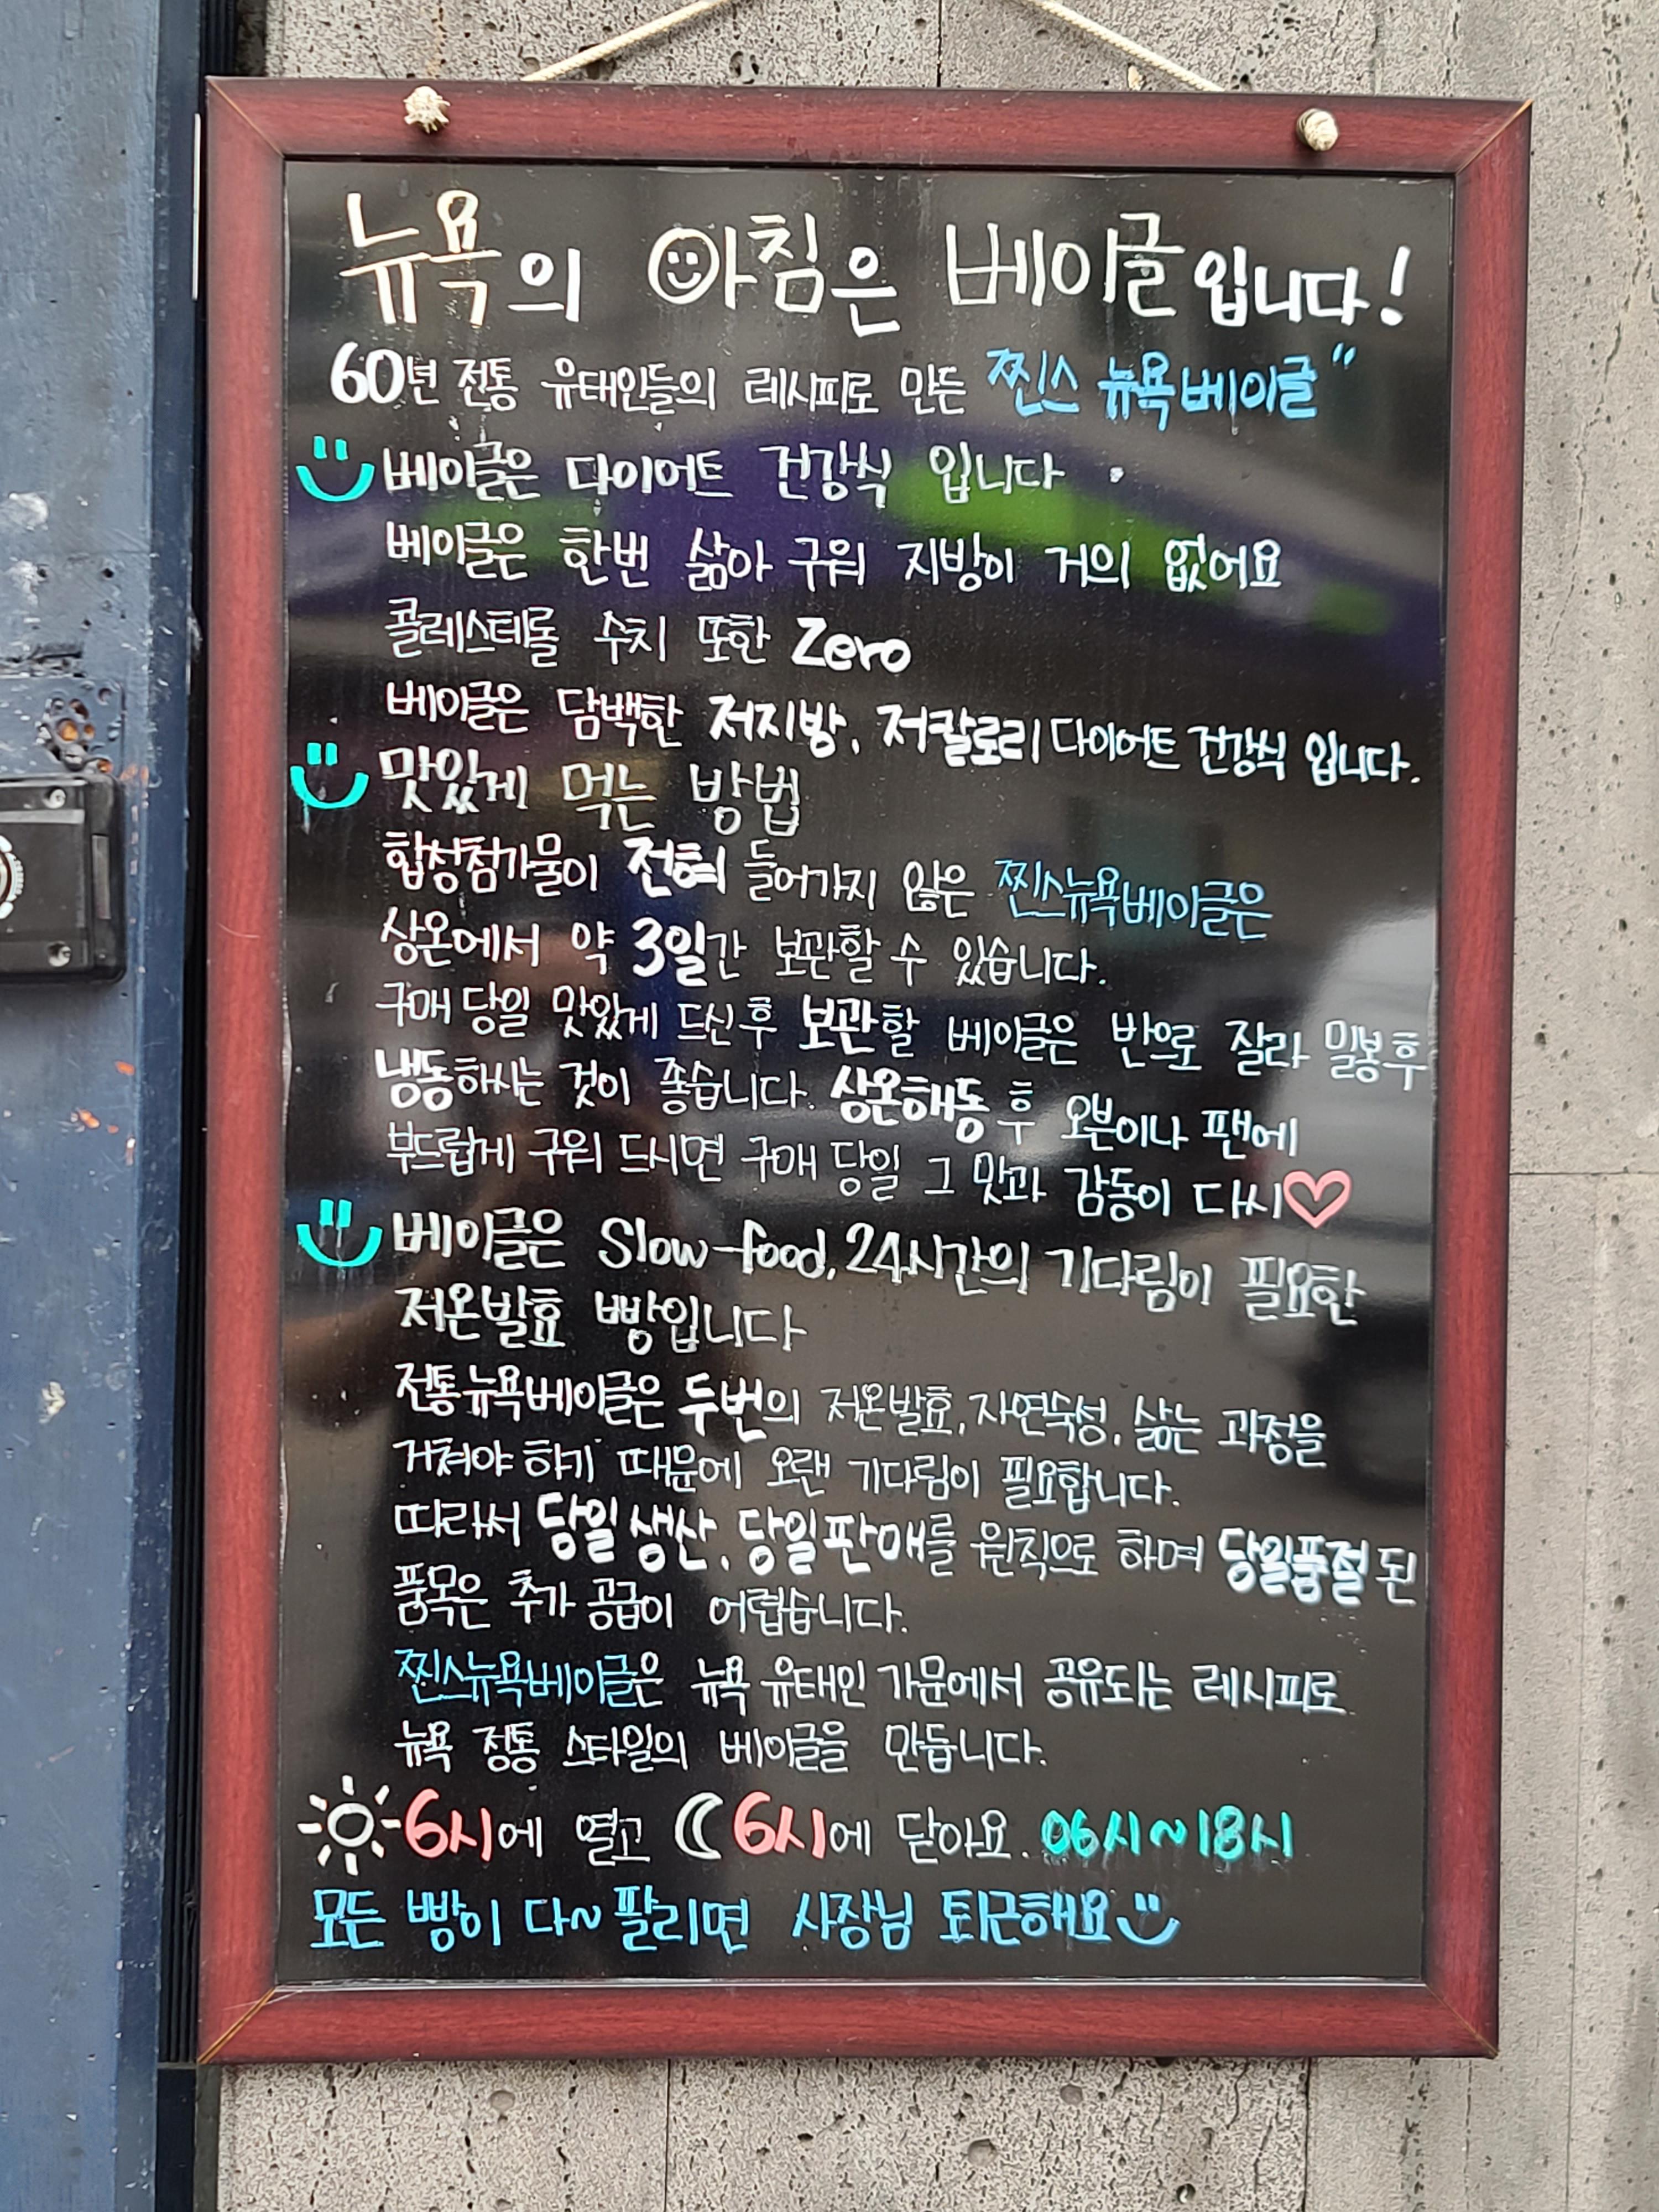 뉴욕의 아침은 베이글입니다!
60년 전통 유태인들의 레시피로 만든 찐스 뉴욕베이글"
베이글은 다이어트 건강식 입니다
베이글은 한번 삶아 구워 지방이 거의 없어요
콜레스테롤 수치 또한 Zero
베이글은 담백한 저지방, 저칼로리 다이어트 건강식 입니다.
맛있게 먹는 방법
합성첨가물이 전혀 들어가지 않은 찐스뉴욕베이글은
상온에서 약 3일간 보관할 수 있습니다.
구매 당일 맛있게 드신 후 보관할 베이글은 반으로 잘라 밀봉 후
냉동하시는 것이 좋습니다. 상온해동 후 오븐이나 팬에
부드럽게 구워 드시면 구매 당일 그 맛과 감동이 다시♡
베이글은 Slow-food, 24시간의 기다림이 필요한
저온발효 빵입니다
전통뉴욕베이글은 두번의 저온발효, 자연숙성, 삶는 과정을
거쳐야 하기 때문에 오랜 기다림이 필요합니다.
따라서 당일생산, 당일판매를 원칙으로 하며 당일품절 된
품목은 추가 공급이 어렵습니다.
찐스뉴욕베이글은 뉴욕 유태인 가문에서 공유되는 레시피로
뉴욕 정통 스타일의 베이글을 만듭니다.
6시에 열고 6시에 닫아요. 06시~18시
모든 빵이 다~ 팔리면 사장님 퇴근해요